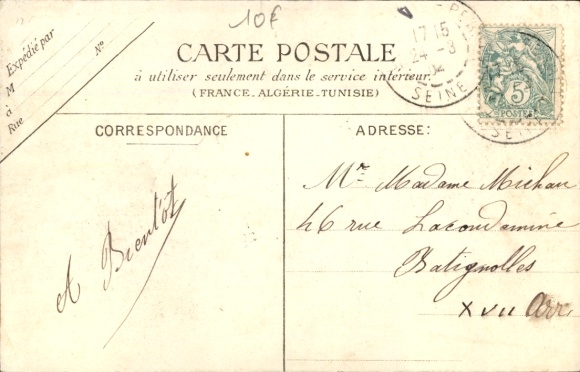 10€
Expédié par
M
N°
à
Rue
CARTE POSTALE
à utiliser seulement dans le service intérieur.
(FRANCE_ALGÉRIE_TUNISIE)
17 15
24 -8
04
SEINE
5
POSTES
CORRESPONDANCE
ADRESSE:
A Bientôt
Mr Madame Michau
46 rue Lacondamine
Batignolles
XVII Arr